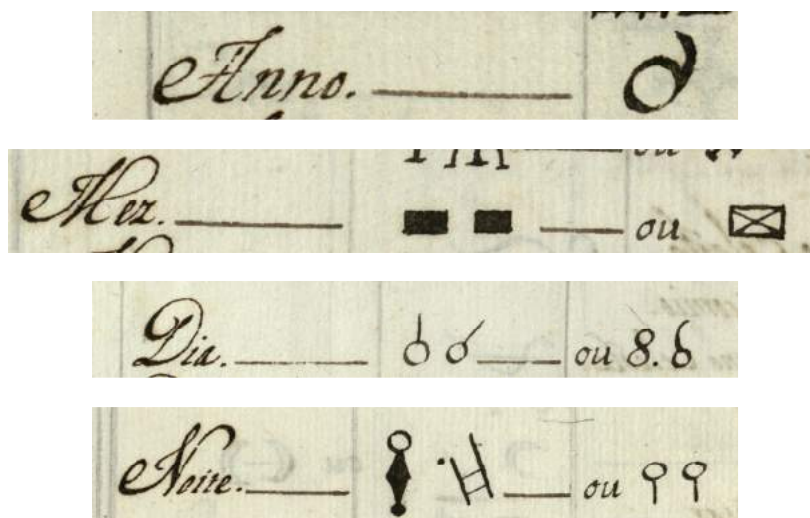 Anno.
Mez. ou
Dia. ou 8.
Noite. ou